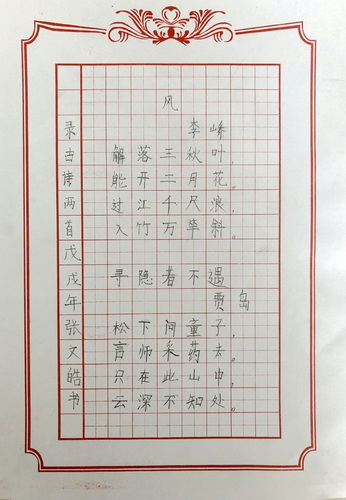 风
李峤
解落三秋叶，
能开二月花。
过江千尺浪，
入竹万竿斜。
寻隐者不遇
贾岛
松下问童子，
言师采药去。
只在此山中，
云深不知处。
录古诗两首戊戌年张文皓书